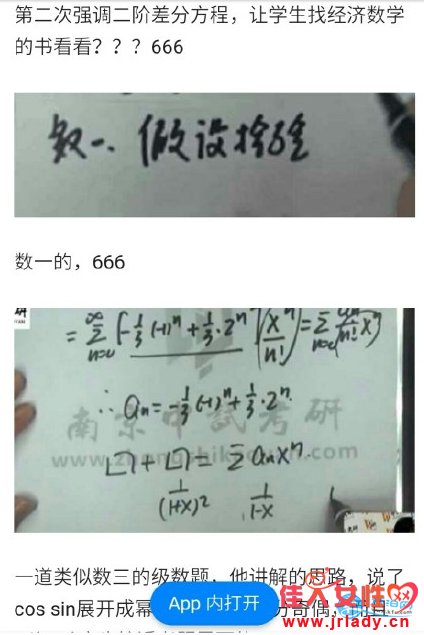 第二次强调二阶差分方程，让学生找经济数学
的书看看？？？666
数一、做设检验
数一的，666
= ∞Σn=0 [-1/3 (-1)^n + 1/3·2^n] (x^n/n!) =
∴ an = -1/3 (-1)^n + 1/3·2^n.
南京中试考研
= Σ anx^n.
1/(1+x)^2 1/(1-x)
一道类似数三的级数题，他讲解的思路，说了
cos sin展开成幂
App 内打开
佳人女性网
www.jrlady.cn